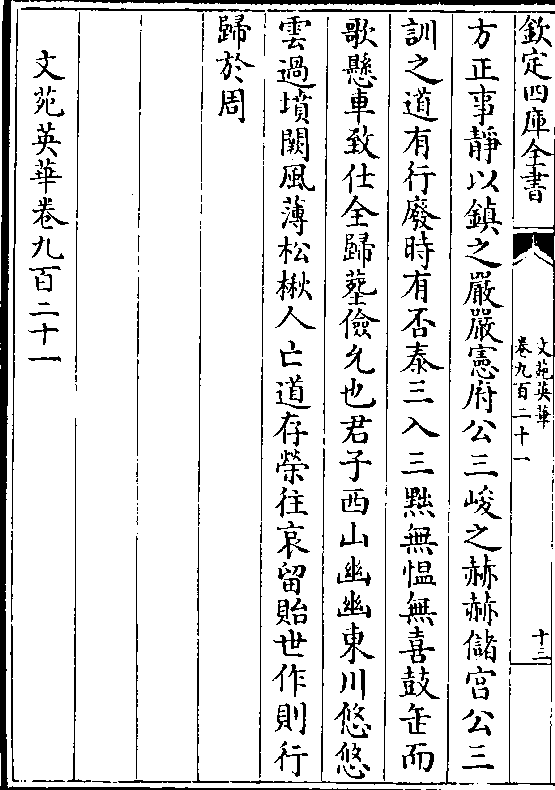 欽定四庫全書
文苑英華
卷九百二十一
十三
方正事靜以鎮之嚴嚴憲府公三峻之赫赫儲宮公三
訓之道有行廢時有否泰三入三黜無愠無喜鼓缶而
歌懸車致仕全歸塟儉允也君子西山幽幽東川悠悠
雲過墳闕風薄松楸人亡道存榮往哀留貽世作則行
歸於周
文苑英華卷九百二十一